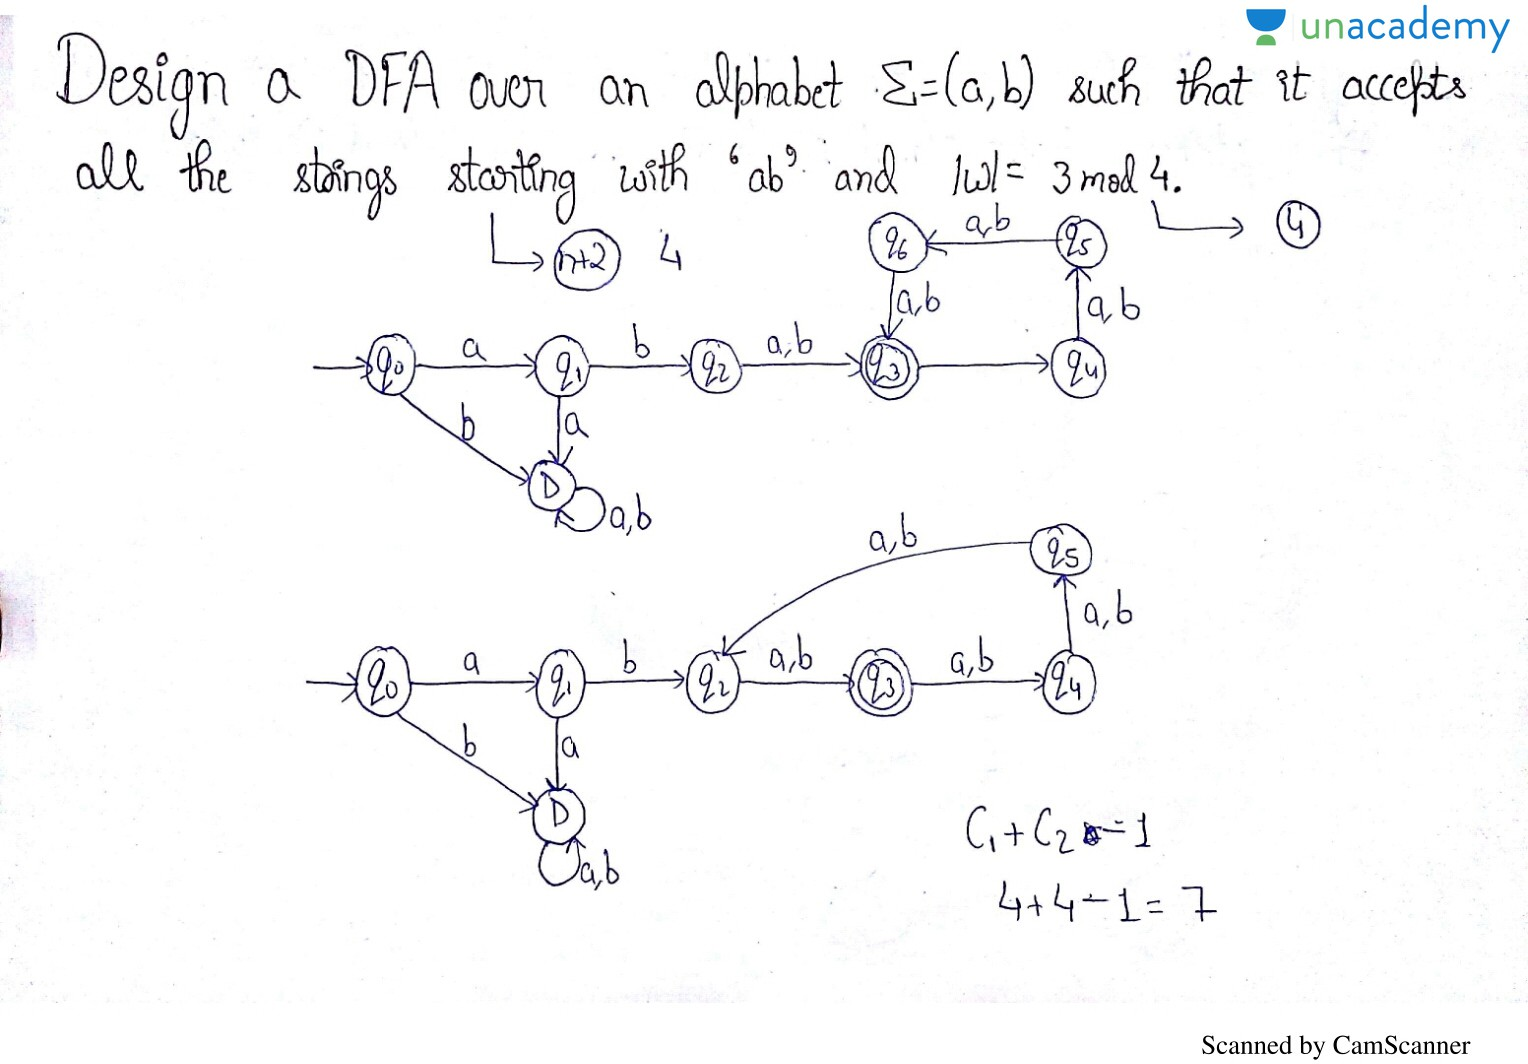 unacademy
Design a DFA over an alphabet Σ=(a,b) such that it accepts
all the strings starting with ‘ab’ and |w|= 3 mod 4.
n+2 4
4
q6 a,b q5
a,b a,b
q0 a q1 b q2 a,b q3 q4
b a
D
a,b
a,b q5
a,b
q0 a q1 b q2 a,b q3 a,b q4
b a
D
a,b
C1+C2 -1
4+4-1= 7
Scanned by CamScanner